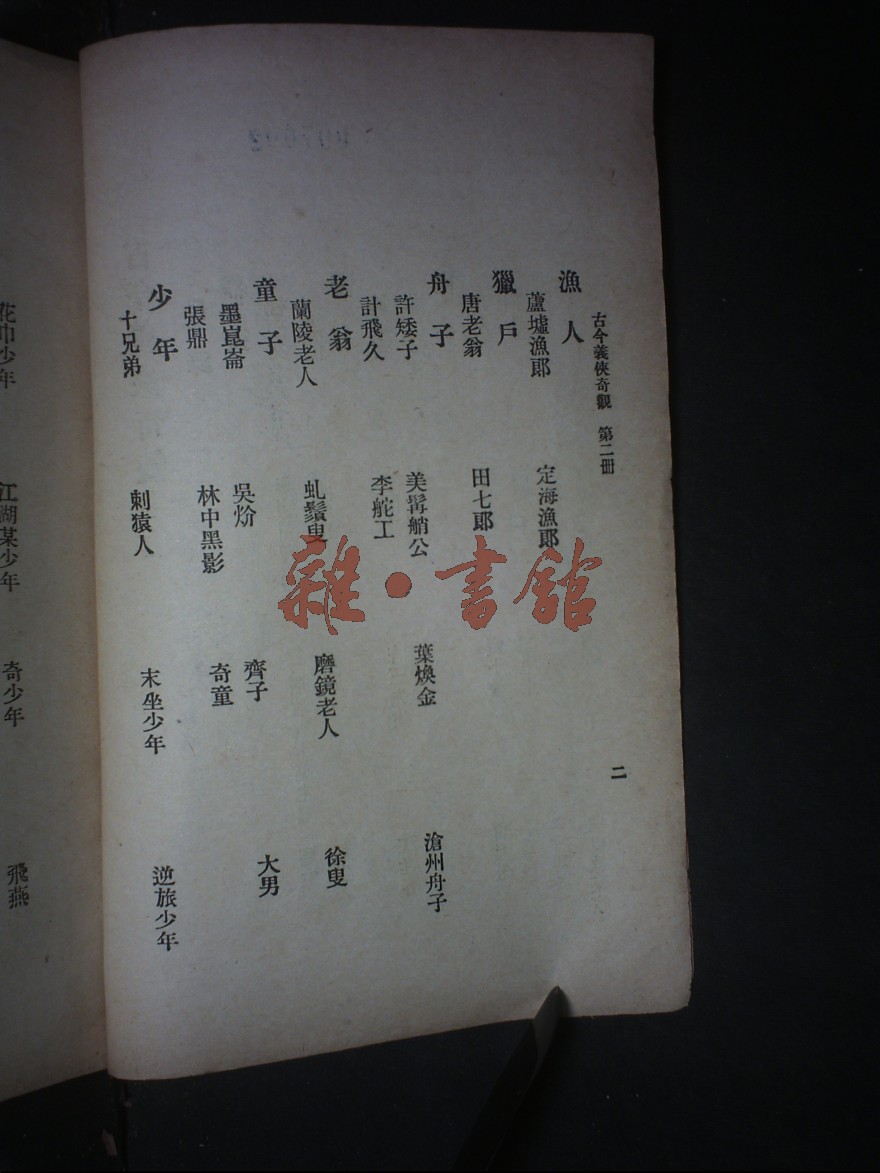 古今義俠奇觀　第二冊
二
漁人
蘆墟漁郎　定海漁郎
獵戶
唐老翁　田七郎
舟子
許矮子　美髯艄公　葉煥金　滄州舟子
計飛久　李舵工
老翁
蘭陵老人　虬鬚叟　磨鏡老人　徐叟
童子
墨崑崙　吳炌　齊子　大男
張鼎　林中黑影　奇童
少年
十兄弟　刺猿人　末坐少年　逆旅少年
花巾少年　江湖某少年　奇少年　飛燕
雜・書館